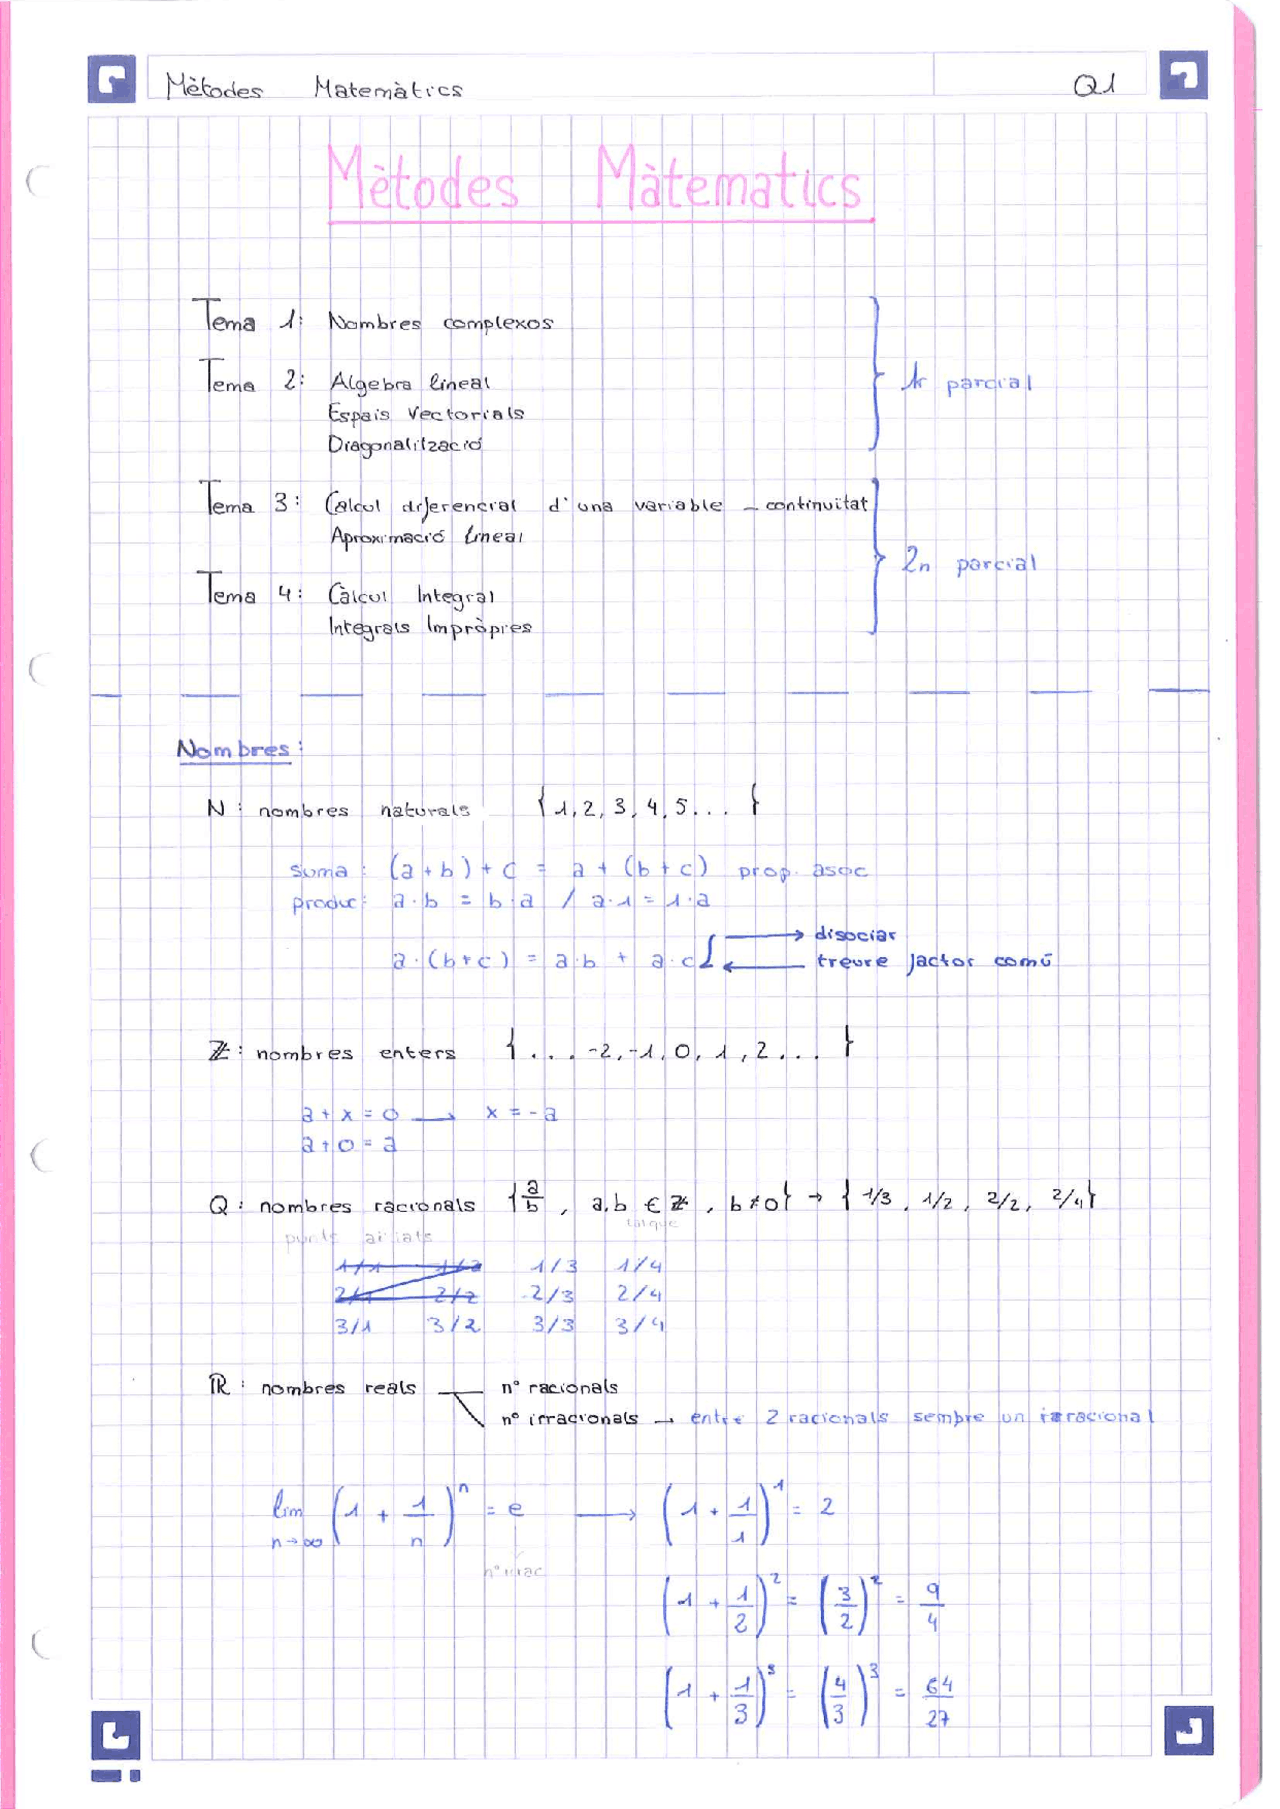 Mètodes Matemàtics Q1
Mètodes Màtematics
Tema 1: Nombres complexos
Tema 2: Algebra lineal
Espais Vectorials
Diagonalització
1r parcial
Tema 3: Calcul diferencial d'una variable - continuïtat
Aproximació lineal
2n parcial
Tema 4: Càlcul Integral
Integrals Impròpies
Nombres:
N: nombres naturals {1, 2, 3, 4, 5... }
suma: (a + b) + c = a + (b + c) prop. asoc
produc: a · b = b · a / a · 1 = 1 · a
a · (b+c) = a·b + a·c
→ disociar
← treure factor comú
ℤ: nombres enters {... -2, -1, 0, 1, 2... }
a + x = 0 → x = -a
a + 0 = a
Q: nombres racionals {a/b, a,b ∈ ℤ, b≠0} → {1/3, 1/2, 2/2, 2/4}
tal que
punts aïllats
1/1 1/2 1/3 1/4
2/1 2/2 2/3 2/4
3/1 3/2 3/3 3/4
ℝ: nombres reals — nº racionals
nº irracionals → entre 2 racionals sempre un irracional
lim n→∞ (1 + 1/n)^n = e → (1 + 1/1)^1 = 2
nº irrac
(1 + 1/2)^2 = (3/2)^2 = 9/4
(1 + 1/3)^3 = (4/3)^3 = 64/27